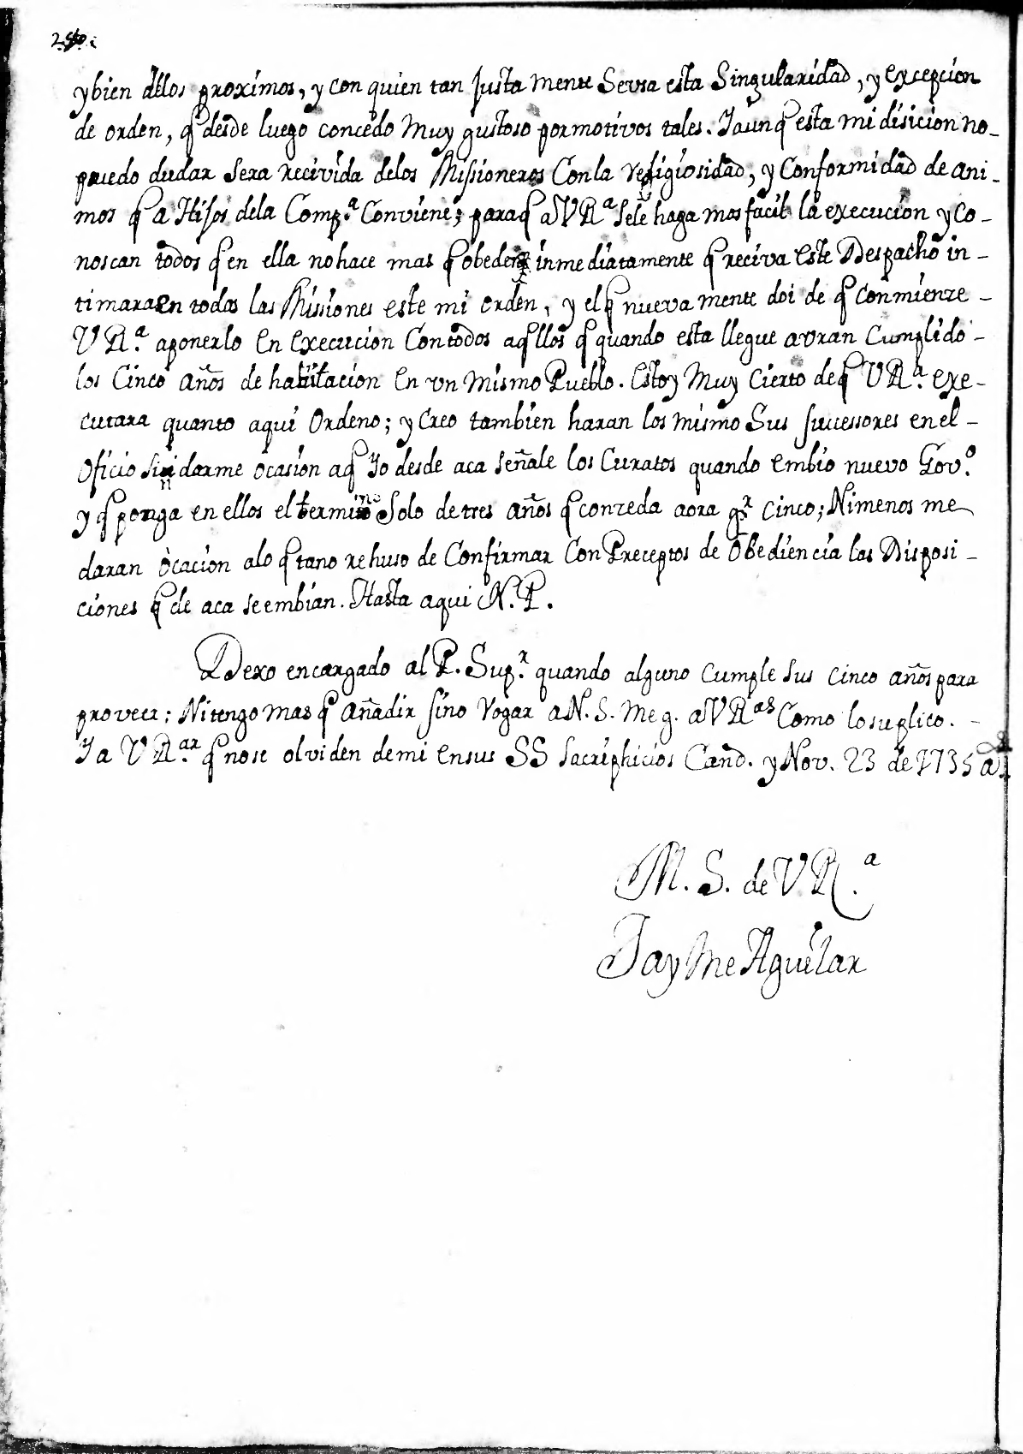 y bien dellos proximos, y con quien tan justa mente Serva esta Singularidad, y excepcion
de orden, q̃ desde luego concedo Muy gustoso por motivos tales. Ỹ aunq̃ esta mi disicion no-
puedo dudar sera recivida delos Missioneros Con la religiosidad, y Conformidad de ani-
mos q̃ a Hijos dela Comp.ª Conviene; paraq̃ a VRª sele haga mos facil la execucion y co-
noscan todos q̃ en ella no hace mas q̃ obedecer inmediatamente q̃ reciva este Despacho in-
timara en todas las Missiones este mi orden, y el q̃ nueva mente doi de q̃ Conmienze-
VR.ª aponerlo en execucion Con todos aq̃llos q̃ quando esta llegue avran Cumplido-
los Cinco años de habitacion en vn mismo Pueblo. Estoy Muy cierto de q̃ VRª. exe-
cutara quanto aqui Ordeno; y Creo tambien haran los mismo Sus successores en el-
Oficio sin darme ocasion aq̃ Yo desde aca señale los Curatos quando embio nuevo Gov.º
y q̃ ponga en ellos el termino Solo de tres años q̃ conzeda aora pr cinco; Ni menos me
daran òcacion alo q̃ tano rehuso de Confirmar Con Preceptos de Obediencia las Disposi-
ciones q̃ de aca se embian. Hasta aqui N. P.
Dexo encargado al P. Supr. quando alguno cumple sus cinco años para
proveer; Ni tengo mas q̃ añadir sino rogar a N. S. me g. a VRas Como lo suplico.-
Y a VRas. q̃ no se olviden de mi en sus SS sacriphicios Cand. y Nov. 23 de 1735 a
M. S. de VR.ª
Jayme Aguilar